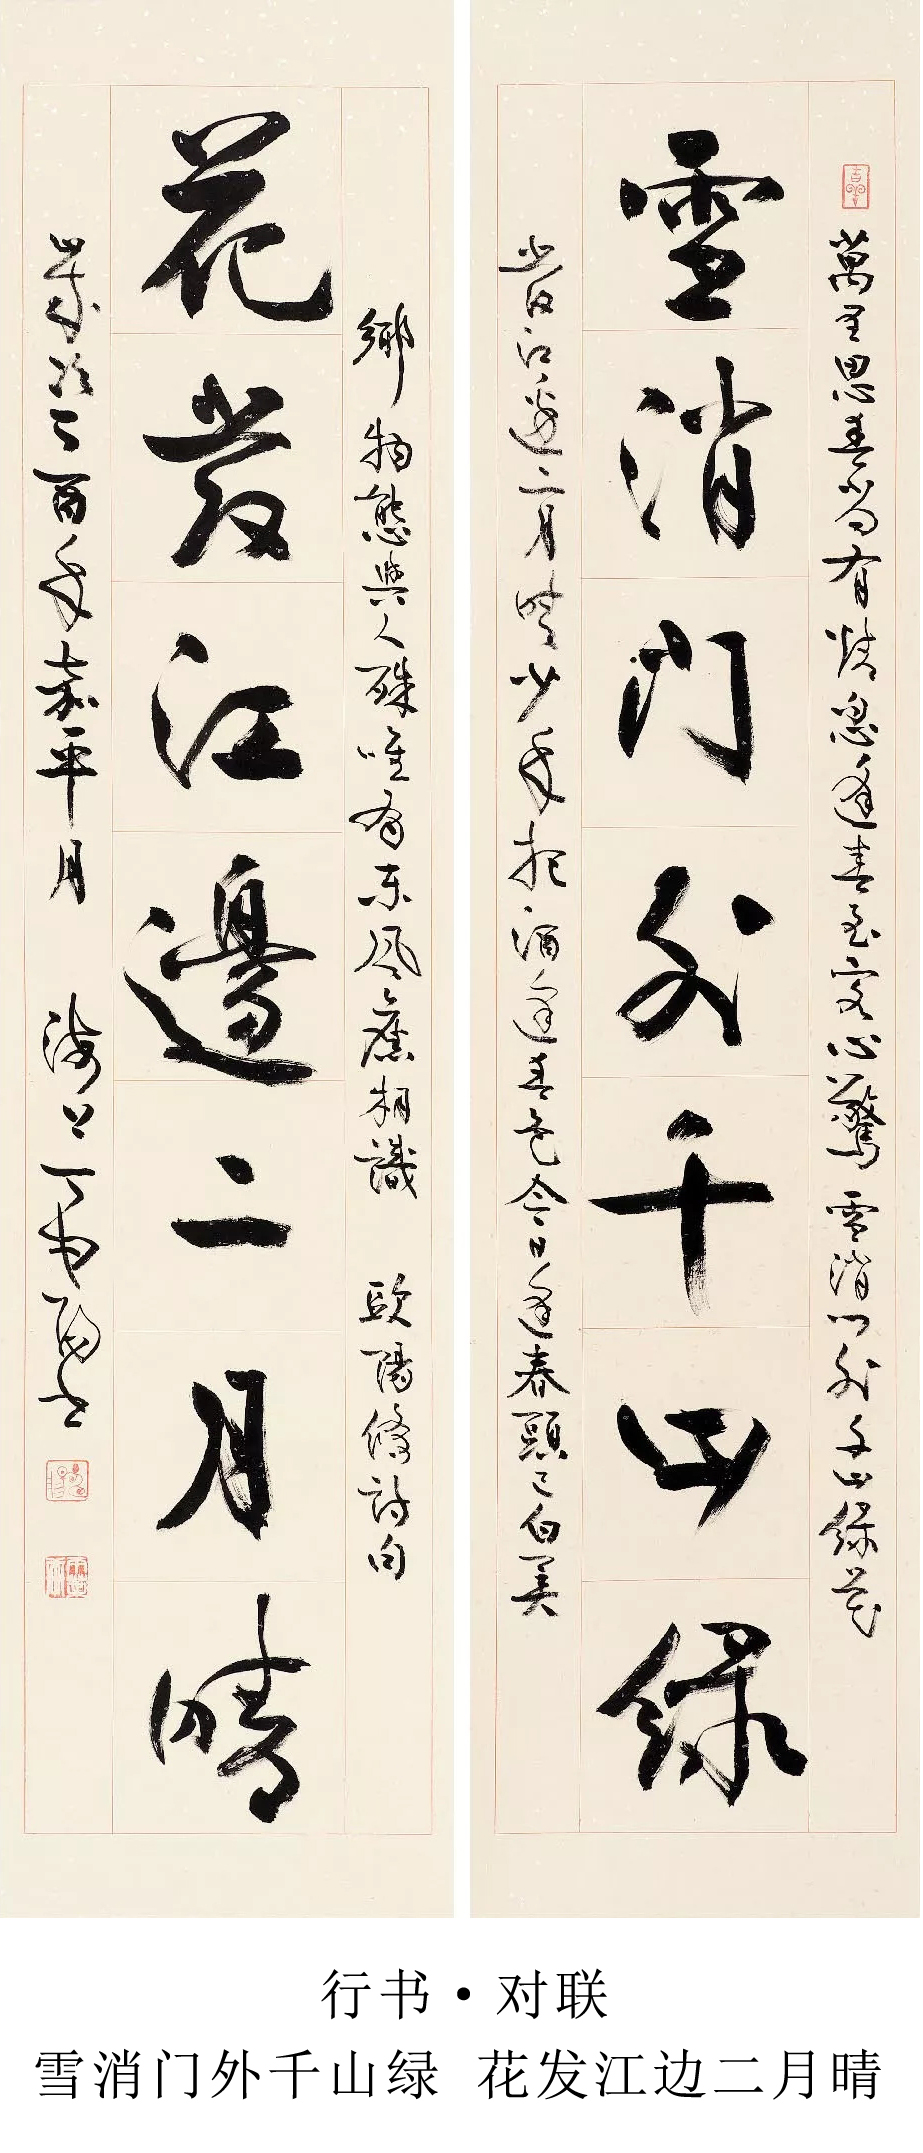 萬里思春尚有情忽逢春至客心驚 雪消門外千山綠花
雪消門外千山綠
發江邊二月晴少年把酒逢春色今日逢春頭已白異
鄉物態與人殊唯有東風舊相識 歐陽修詩句
花發江邊二月晴
歲次丁酉年嘉平月 海上丁申陽書
行书·对联
雪消门外千山绿 花发江边二月晴